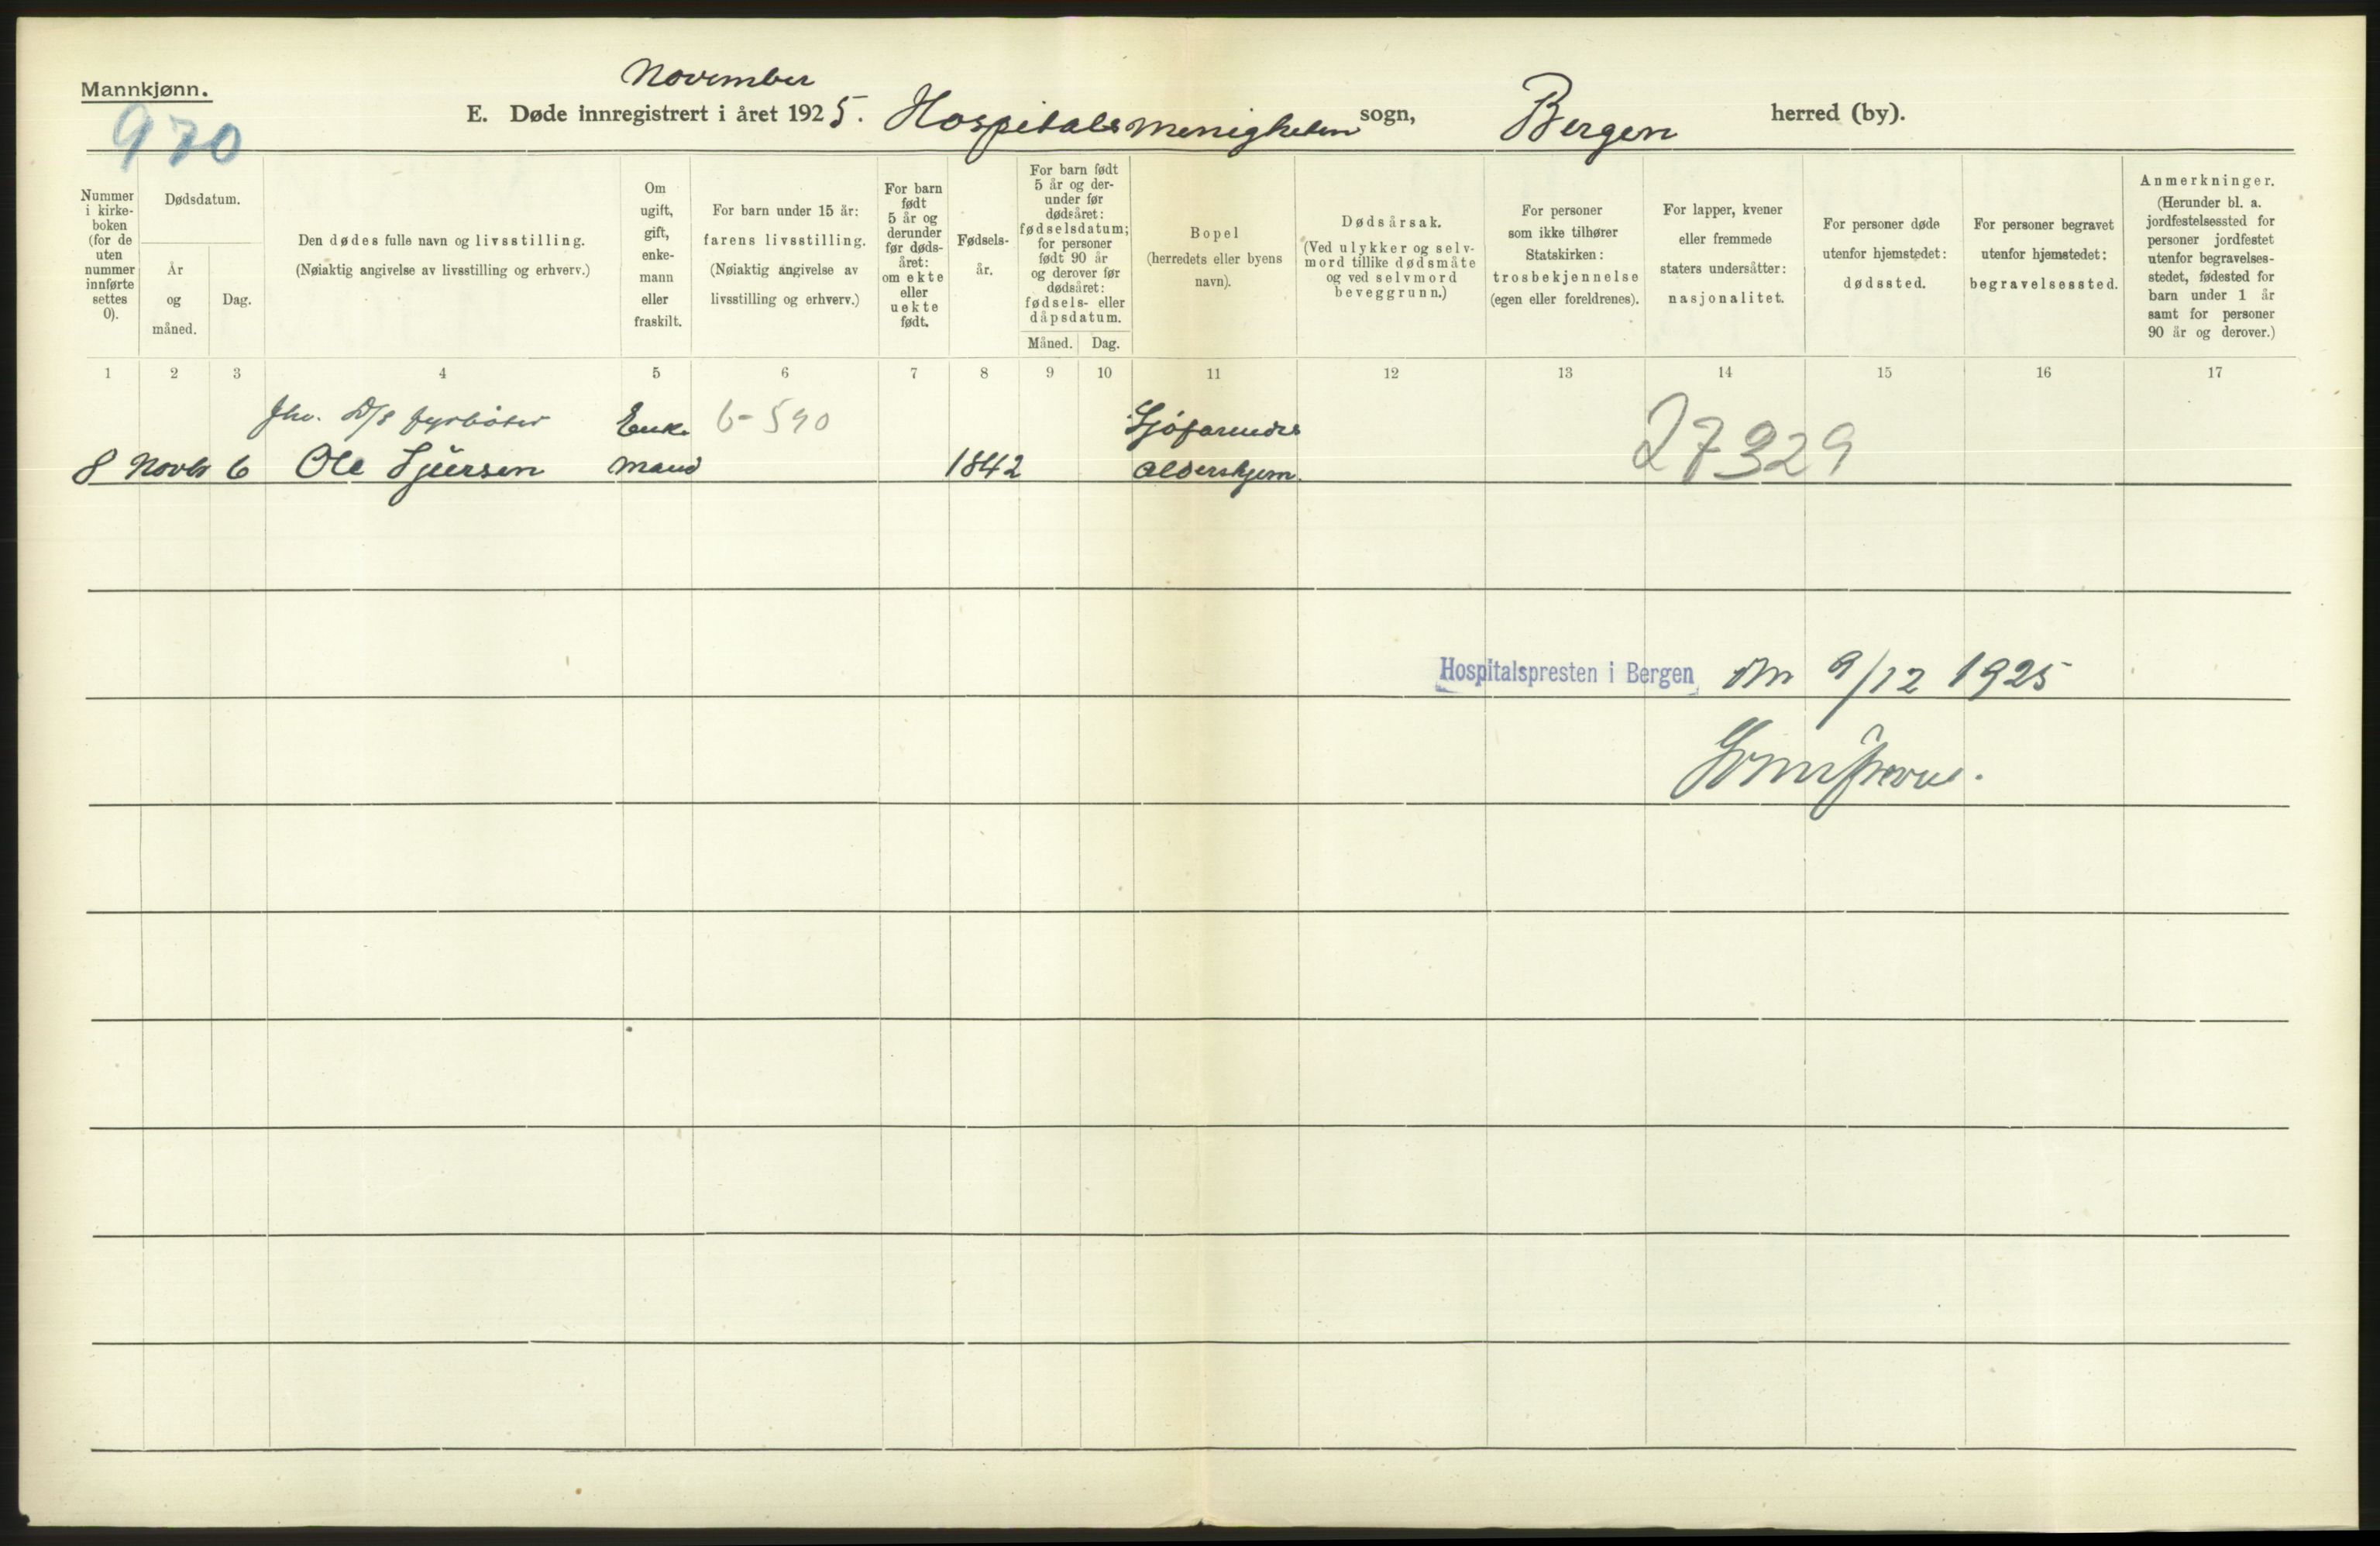 Mannkjønn.
970
November
E. Døde innregistrert i året 1925. Hospitalsmenigheten sogn, Bergen herred (by).
Nummer i kirke- boken (for de uten nummer innførte settes 0).
Dødsdatum.
År og måned.
Dag.
Den dødes fulle navn og livsstilling.
(Nøiaktig angivelse av livsstilling og erhverv.)
Om ugift, gift, enke- mann eller fraskilt.
For barn under 15 år:
farens livsstilling.
(Nøiaktig angivelse av
livsstilling og erhverv.)
For barn født 5 år og derunder før døds- året: om ekte eller uekte født.
Fødsels- år.
For barn født 5 år og der- under før dødsåret: fødselsdatum; for personer født 90 år og derover før dødsåret: fødsels- eller dåpsdatum.
Måned. Dag.
Bopel
(herredets eller byens
navn).
Dødsårsak.
(Ved ulykker og selv-
mord tillike dødsmåte
og ved selvmord
beveggrunn.)
For personer
som ikke tilhører
Statskirken:
trosbekjennelse
(egen eller foreldrenes).
For lapper, kvener
eller fremmede
staters undersåtter:
nasjonalitet.
For personer døde
utenfor hjemstedet:
dødssted.
For personer begravet
utenfor hjemstedet:
begravelsessted.
Anmerkninger.
(Herunder bl. a.
jordfestelsessted for
personer jordfestet
utenfor begravelses-
stedet, fødested for
barn under 1 år
samt for personer
90 år og derover.)
1 2 3 4 5 6 7 8 9 10 11 12 13 14 15 16 17
fhv. D/S fyrbøter Enke 6-590 Sjøfarendes
8 Novbr 6 Ole Sjursen mand 1842 Aldershjem. 27329
Hospitalspresten i Bergen den 9/12 1925